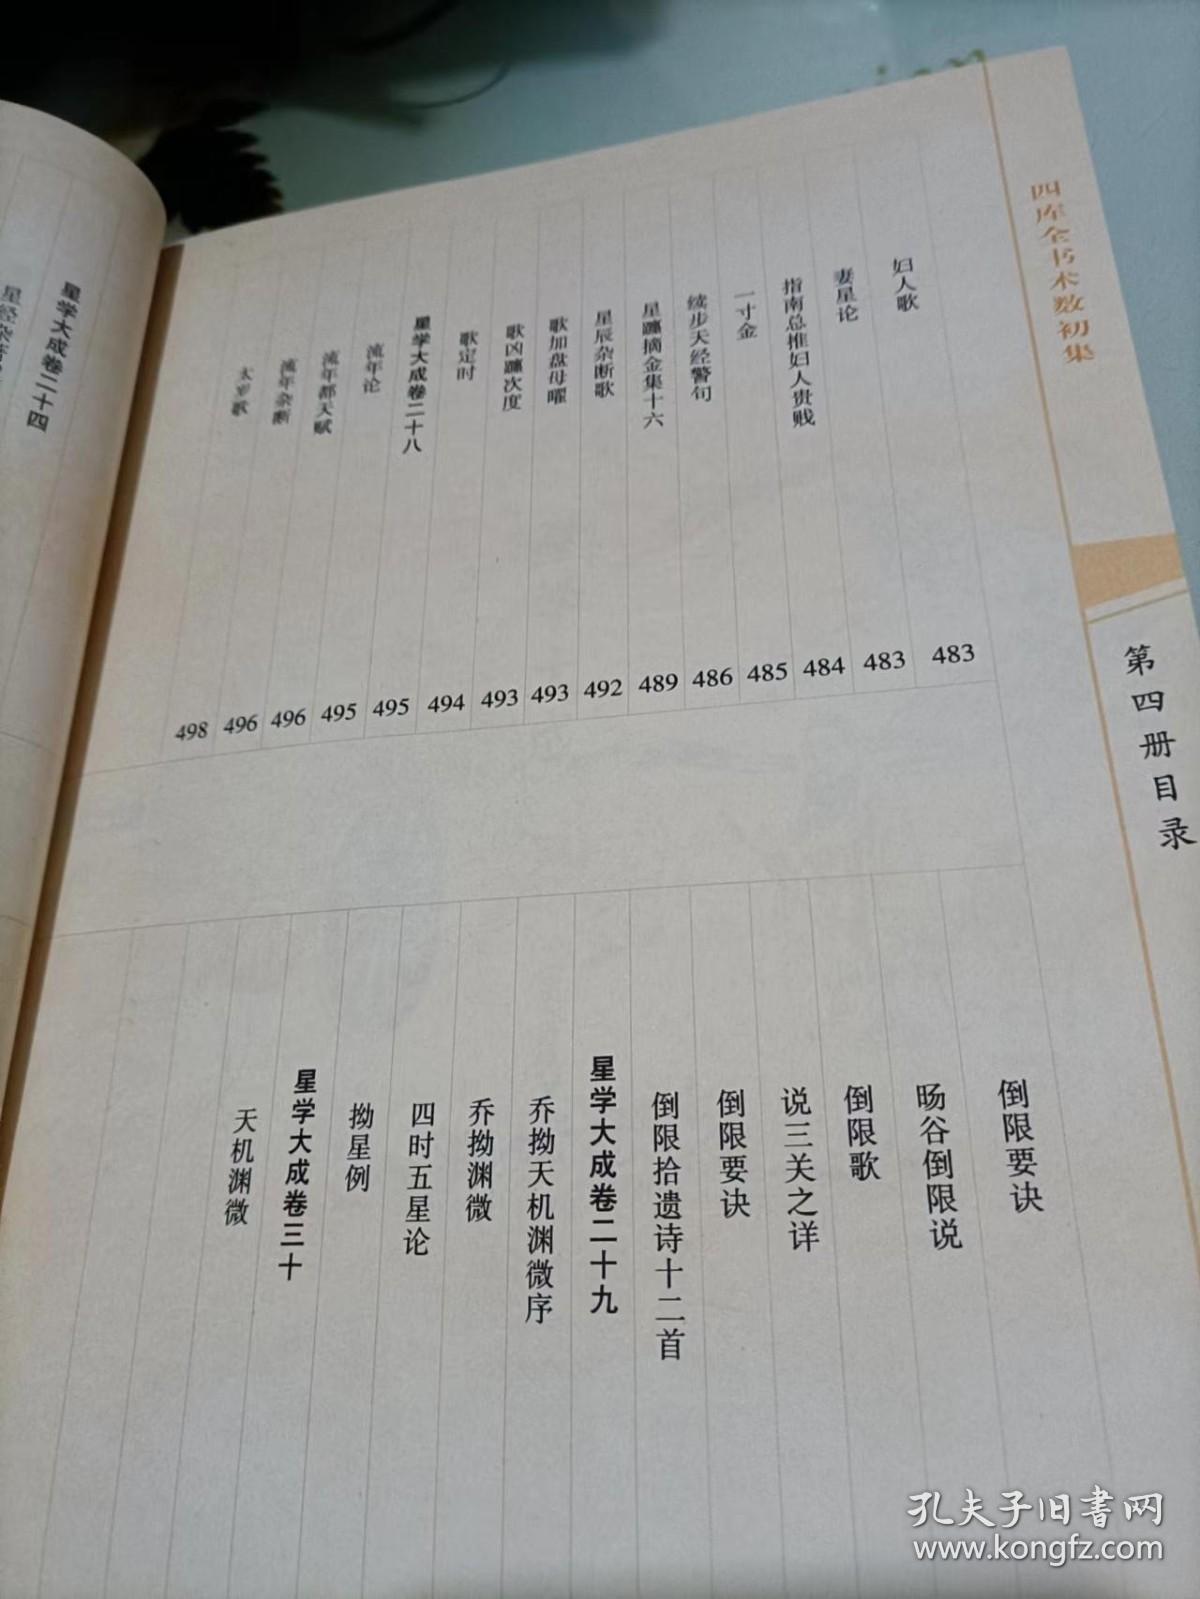 四库全书术数初集
第四册目录
妇人歌 483
妻星论 483
指南总推妇人贵贱 484
一寸金 485
续步天经警句 486
星躔摘金集十六 489
星辰杂断歌 492
歌加盘母曜 493
歌凶躔次度 493
歌定时 494
星学大成卷二十八 495
流年论 495
流年都天赋 496
流年杂断 496
太岁歌 498
倒限要诀
旸谷倒限说
倒限歌
说三关之详
倒限要诀
倒限拾遗诗十二首
星学大成卷二十九
乔拗天机渊微序
乔拗渊微
四时五星论
拗星例
星学大成卷三十
天机渊微
星学大成卷二十四
星经杂
孔夫子旧書网
www.kongfz.com